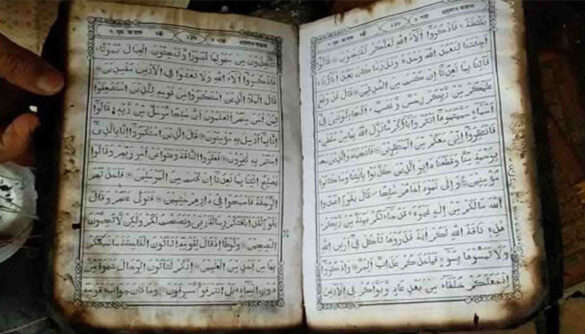 بَصْۜطَةً ۚ فَاذْكُرُوْٓا اٰلَآءَ اللّٰهِ لَعَلَّكُمْ تُفْلِحُوْنَ قَالُوْٓا
اَجِئْتَنَا لِنَعْبُدَ اللّٰهَ وَحْدَهٗ وَنَذَرَ مَا كَانَ يَعْبُدُ اٰبَآؤُنَا
فَاْتِنَا بِمَا تَعِدُنَآ اِنْ كُنْتَ مِنَ الصّٰدِقِيْنَ قَالَ قَدْ وَقَعَ
عَلَيْكُمْ مِّنْ رَّبِّكُمْ رِجْسٌ وَّغَضَبٌ اَتُجَادِلُوْنَنِيْ فِيْٓ
اَسْمَآءٍ سَمَّيْتُمُوْهَآ اَنْتُمْ وَاٰبَآؤُكُمْ مَّا نَزَّلَ اللّٰهُ بِهَا مِنْ سُلْطٰنٍ
فَانْتَظِرُوْٓا اِنِّيْ مَعَكُمْ مِّنَ الْمُنْتَظِرِيْنَ فَاَنْجَيْنٰهُ وَالَّذِيْنَ مَعَهٗ
بِرَحْمَةٍ مِّنَّا وَقَطَعْنَا دَابِرَ الَّذِيْنَ كَذَّبُوْا بِاٰيٰتِنَا وَمَا كَانُوْا
مُؤْمِنِيْنَ وَاِلٰى ثَمُوْدَ اَخَاهُمْ صٰلِحًا قَالَ يٰقَوْمِ اعْبُدُوا
اللّٰهَ مَا لَكُمْ مِّنْ اِلٰهٍ غَيْرُهٗ قَدْ جَآءَتْكُمْ بَيِّنَةٌ مِّنْ رَّبِّكُمْ
هٰذِهٖ نَاقَةُ اللّٰهِ لَكُمْ اٰيَةً فَذَرُوْهَا تَاْكُلْ فِيْٓ اَرْضِ اللّٰهِ
وَلَا تَمَسُّوْهَا بِسُوْٓءٍ فَيَاْخُذَكُمْ عَذَابٌ اَلِيْمٌ وَاذْكُرُوْٓا
اِذْ جَعَلَكُمْ خُلَفَآءَ مِنْۢ بَعْدِ عَادٍ وَّبَوَّاَكُمْ فِي الْاَرْضِ
تَتَّخِذُوْنَ مِنْ سُهُوْلِهَا قُصُوْرًا وَّتَنْحِتُوْنَ الْجِبَالَ بُيُوْتًا
فَاذْكُرُوْٓا اٰلَآءَ اللّٰهِ وَلَا تَعْثَوْا فِي الْاَرْضِ مُفْسِدِيْنَ
قَالَ الْمَلَاُ الَّذِيْنَ اسْتَكْبَرُوْا مِنْ قَوْمِهٖ لِلَّذِيْنَ اسْتُضْعِفُوْا
لِمَنْ اٰمَنَ مِنْهُمْ اَتَعْلَمُوْنَ اَنَّ صٰلِحًا مُّرْسَلٌ مِّنْ رَّبِّهٖ قَالُوْٓا
اِنَّا بِمَآ اُرْسِلَ بِهٖ مُؤْمِنُوْنَ قَالَ الَّذِيْنَ اسْتَكْبَرُوْٓا اِنَّا بِالَّذِيْٓ
اٰمَنْتُمْ بِهٖ كٰفِرُوْنَ فَعَقَرُوا النَّاقَةَ وَعَتَوْا عَنْ اَمْرِ رَبِّهِمْ وَقَالُوْا
يٰصٰلِحُ ائْتِنَا بِمَا تَعِدُنَآ اِنْ كُنْتَ مِنَ الْمُرْسَلِيْنَ فَاَخَذَتْهُمُ
الرَّجْفَةُ فَاَصْبَحُوْا فِيْ دَارِهِمْ جٰثِمِيْنَ فَتَوَلّٰى عَنْهُمْ وَقَالَ
يٰقَوْمِ لَقَدْ اَبْلَغْتُكُمْ رِسَالَةَ رَبِّيْ وَنَصَحْتُ لَكُمْ وَلٰكِنْ لَّا تُحِبُّوْنَ
النّٰصِحِيْنَ وَلُوْطًا اِذْ قَالَ لِقَوْمِهٖٓ اَتَاْتُوْنَ الْفَاحِشَةَ مَا سَبَقَكُمْ
بِهَا مِنْ اَحَدٍ مِّنَ الْعٰلَمِيْنَ اِنَّكُمْ لَتَاْتُوْنَ الرِّجَالَ شَهْوَةً مِّنْ
دُوْنِ النِّسَآءِ بَلْ اَنْتُمْ قَوْمٌ مُّسْرِفُوْنَ وَمَا كَانَ جَوَابَ قَوْمِهٖٓ